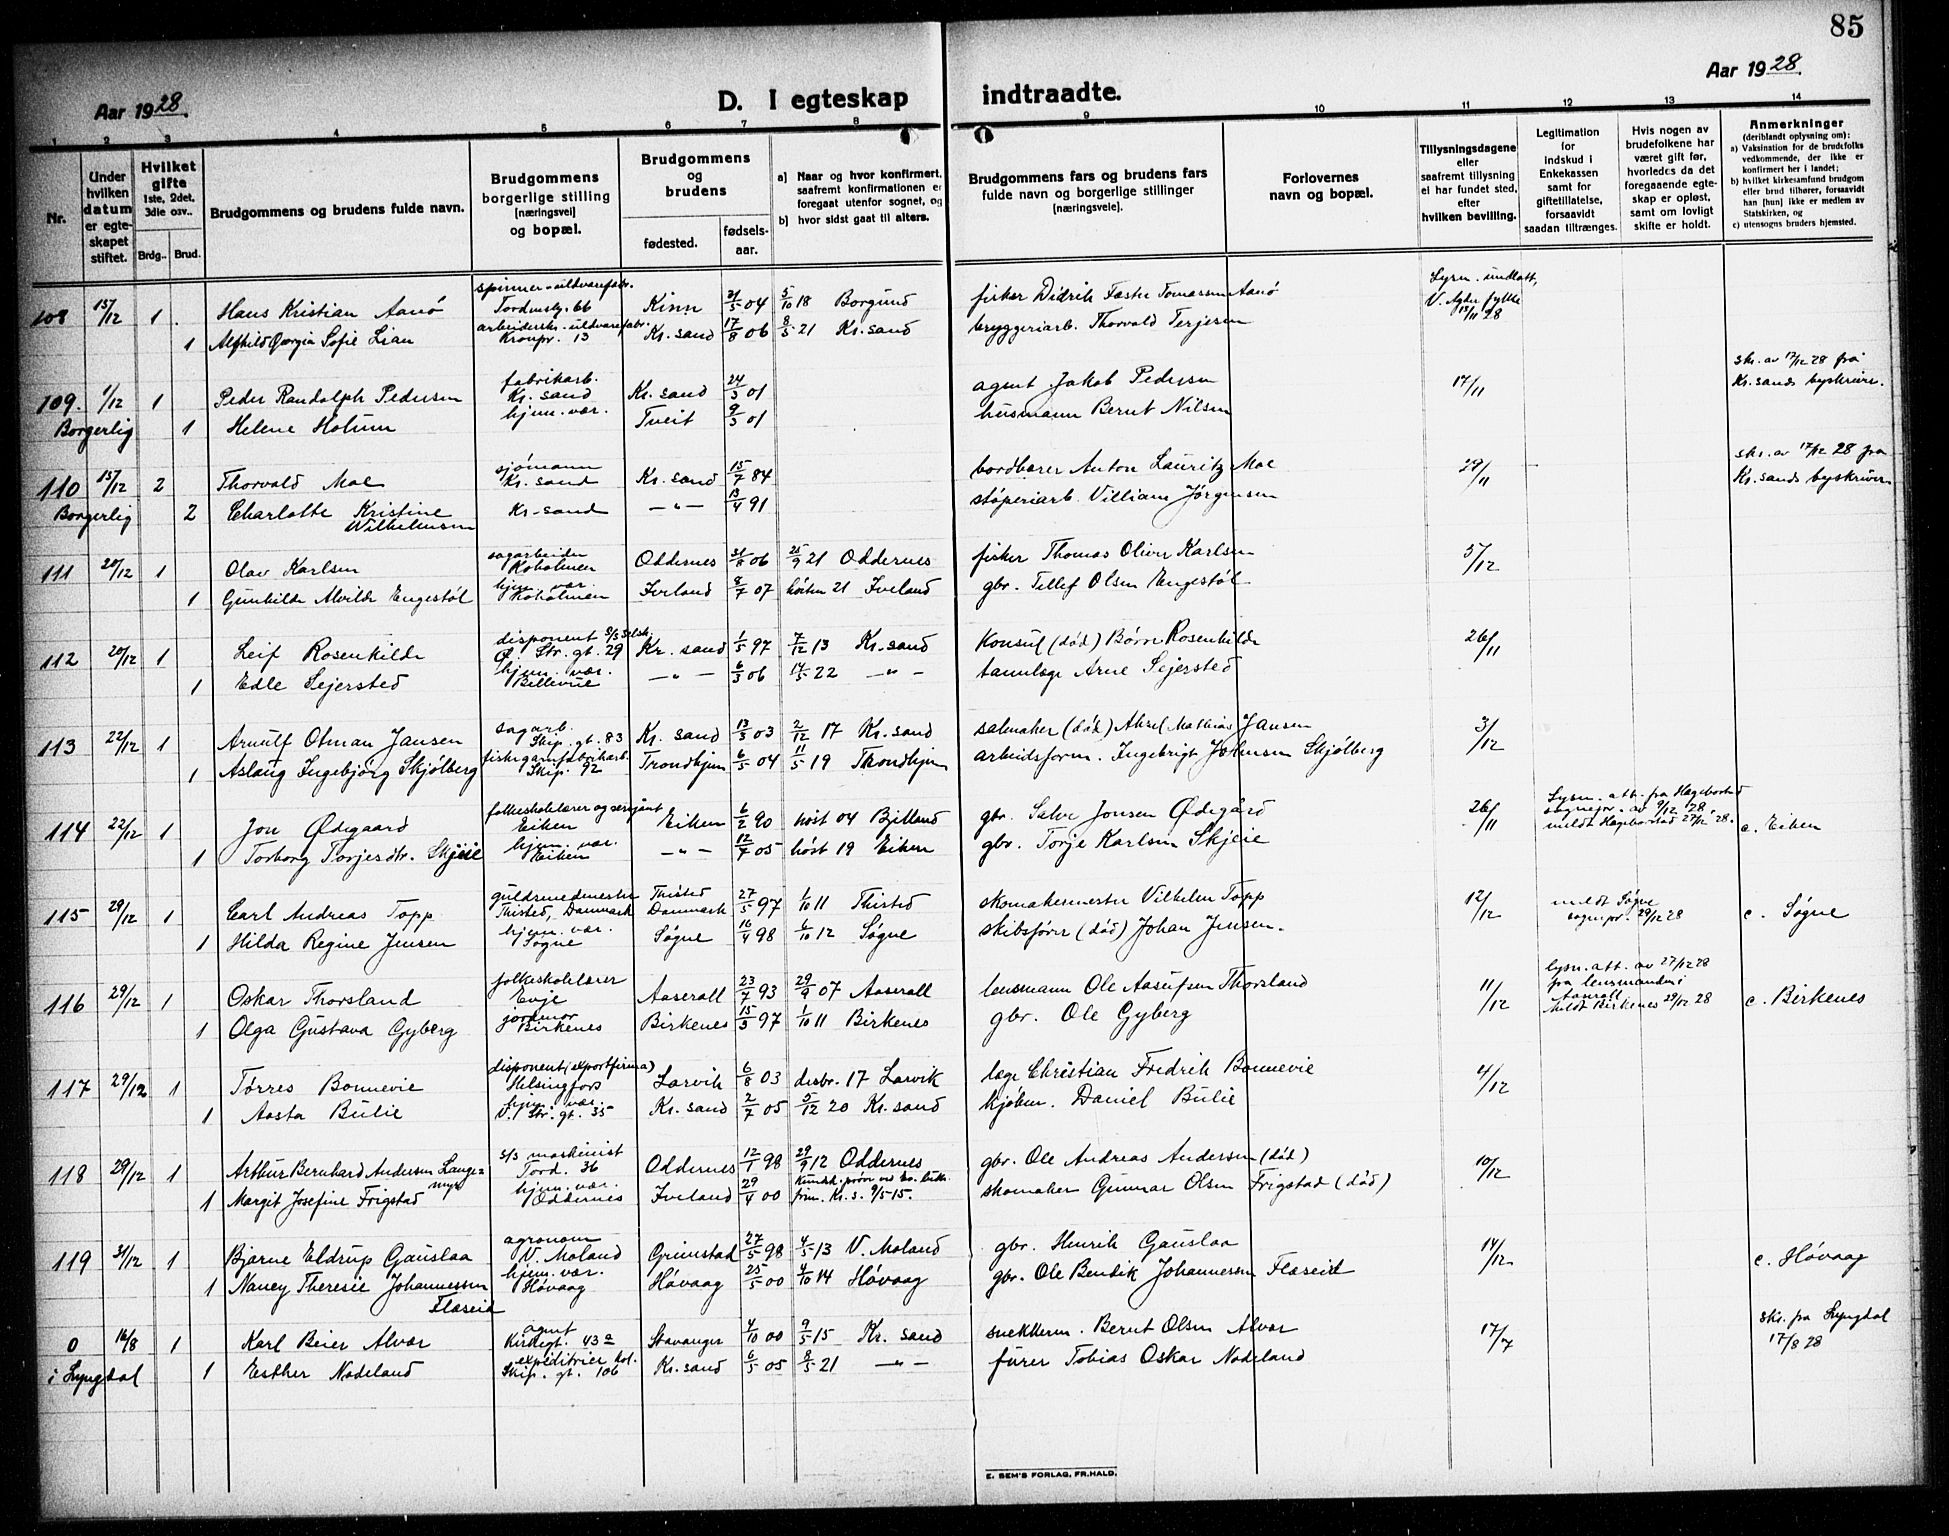 85
Aar 1928.
D. I egteskap indtraadte.
Aar 1928.
1 2 3 4 5 6 7 8 9 10 11 12 13 14
Nr.
Under hvilken datum er egteskapet stiftet.
Hvilket gifte 1ste, 2det, 3die osv..
Brdg..
Brud.
Brudgommens og brudens fulde navn.
Brudgommens borgerlige stilling [næringsvei] og bopæl.
Brudgommens og brudens
fødested.
fødselsaar.
a) Naar og hvor konfirmert, saafremt konfirmationen er foregaat utenfor sognet, og
b) hvor sidst gaat til alters.
Brudgommens fars og brudens fars fulde navn og borgerlige stillinger [næringsveie].
Forlovernes navn og bopæl.
Tillysningsdagene eller saafremt tillysning ei har fundet sted, efter hvilken bevilling.
Legitimation for indskud i Enkekassen samt for giftetillatelse, forsaavidt saadan tiltrænges.
Hvis nogen av brudefolkene har været gift før, hvorledes da det foregaaende egteskap er opløst, samt om lovligt skifte er holdt.
Anmerkninger
(deriblandt oplysning om):
a) Vaksination for de brudefolks vedkommende, der ikke er konfirmert her i landet;
b) hvilket kirkesamfund brudgom eller brud tilhører, forsaavidt han [hun] ikke er medlem av Statskirken, og
c) utensogns bruders hjemsted.
108 15/12 1 Hans Kristian Aanø spinner-uldvarefabr. Tordenskj. 66 Kinn 21/5 04 5/10 18 Borgund fisker Didrik Faste Tomassen Aanø Lysn. undlatt, V. Agder fylke 13/11 28
1 Alfhild Georgia Sofie Lian arbeiderske-uldvarefabr. Kronpr. 13 Kr. sand 17/8 06 8/5 21 Kr. sand bryggeriarb. Thorvald Terjesen
109. 1/12 1 Peder Randolph Pedersen fabrikarb. Kr. sand Kr. sand 24/3 01 agent Jakob Pedersen 17/11 skr. av 17/12 28 fra Kr. sands byskriver.
Borgerlig 1 Helene Holum hjem. vær. Tveit 9/3 01 husmann Bernt Nilsen
110 15/12 2 Thorvald Moe sjømann Kr. sand Kr. sand 15/7 84 bordbærer Anton Lauritz Moe 29/11 skr. av 17/12 28 fra Kr. sands byskriver
Borgerlig 2 Charlotte Kristine Wilhelmsen Kr-sand —"— 13/4 91 støperiarb. Villiam Jørgensen
111 20/12 1 Olav Karlsen sagarbeider Koholmen Oddernes 31/8 06 25/9 21 Oddernes fisker Thomas Oliver Karlsen 5/12
1 Gunhilde Alvilde Engestøl hjem. vær. Koholmen Iveland 8/7 07 høsten 21 Iveland gbr. Tellef Olsen Engestøl
112 20/12 1 Leif Rosenkilde disponent S/S selsk. Ø. Str. gt. 29 Kr. sand 1/5 97 7/12 13 Kr. sand Konsul (død) Børre Rosenkilde 26/11
1 Edle Sejersted hjem. vær. Bellevue —"— 6/3 06 14/5 22 —"— tannlæge Arne Sejersted
113 22/12 1 Arnulf Otman Jansen sagarb. Skip. gt. 83 Kr. sand 13/3 03 2/12 17 Kr. sand salmaker (død) Aksel Mathias Jansen 3/12
1 Aslaug Ingebjørg Skjølberg fiskegarnfabrikarb. Skip. 92 Trondhjem 6/5 04 11/5 19 Trondhjem arbeidsform. Ingebrigt Johnsen Skjølberg
114 22/12 1 Jon Ødegaard folkeskolelærer og sersjant Eiken Eiken 6/2 90 høst 04 Bjelland gbr. Salve Jonsen Ødegård 26/11 Lysn. att. fra Hægebostad sognepr. av 9/12 28. meldt Hægebostad 27/12 28. c. Eiken
1 Torborg Torjesdtr. Skjeie hjem. vær. Eiken —"— 12/7 05 høst 19 Eiken gbr. Torje Karlsen Skjeie
115 29/12 1 Carl Andreas Topp guldsmedmester Thisted, Danmark Thisted Danmark 27/5 97 1/10 11 Thisted skomakermester Vilhelm Topp 12/12 meldt Søgne sognepr. 29/12 28 c. Søgne
1 Hilda Regine Jensen hjem. vær. Søgne Søgne 16/4 98 6/10 12 Søgne skibsfører (død) Johan Jensen.
116 29/12 1 Oskar Thorsland folkeskolelærer Evje Aaserall 23/7 93 29/9 07 Aaserall lensmann Ole Aasufsen Thorsland 11/12 lysn. att. av 27/12 28 fra lensmanden i Aaserall Meldt Birkenes 29/12 28 c. Birkenes
1 Olga Gustava Gyberg jordmor Birkenes Birkenes 15/3 97 1/10 11 Birkenes gbr. Ole Gyberg
117 29/12 1 Tørres Bonnevie disponent (exportfirma) Helsingfors Larvik 6/8 03 desbr. 17 Larvik læge Christian Fredrik Bonnevie 4/12
1 Aasta Bulie hjem. vær. V. Str. gt. 35 Kr. sand 2/7 05 5/12 20 Kr. sand kjøbm. Daniel Bulie
118 29/12 1 Arthur Bernhard Andersen Langemyr S/S maskinist Tord. 36 Oddernes 12/1 98 29/9 12 Oddernes gbr. Ole Andreas Andersen (død) 10/12
1 Margit Josefine Frigstad hjem. vær. Oddernes Iveland 29/4 00 Kr. s. 9/5-15. skomaker Gunnar Olsen Frigstad (død)
119 31/12 1 Bjarne Eldrup Gauslaa agronom V. Moland Grimstad 27/5 98 4/5 13 V. Moland gbr. Henrik Gauslaa 14/12 c. Høvaag
1 Nancy Theresie Johannessen Flæseid hjem. vær. Høvaag Høvaag 25/5 00 4/10 14 Høvaag gbr. Ole Bendik Johannessen Flæseid
0 16/8 1 Karl Beier Alvær agent Kirkegt. 43 a Stavanger 4/10 00 9/5 15 Kr. sand snekkerm. Bernt Olsen Alvær 17/7 skr. fra Lyngdal 17/8 28
i Lyngdal 1 Esther Nodeland expeditrice kol. Skip. gt. 106 Kr. sand 6/5 05 8/5 21 —"— fører Tobias Oskar Nodeland
E. SEM'S FORLAG, FR.HALD.